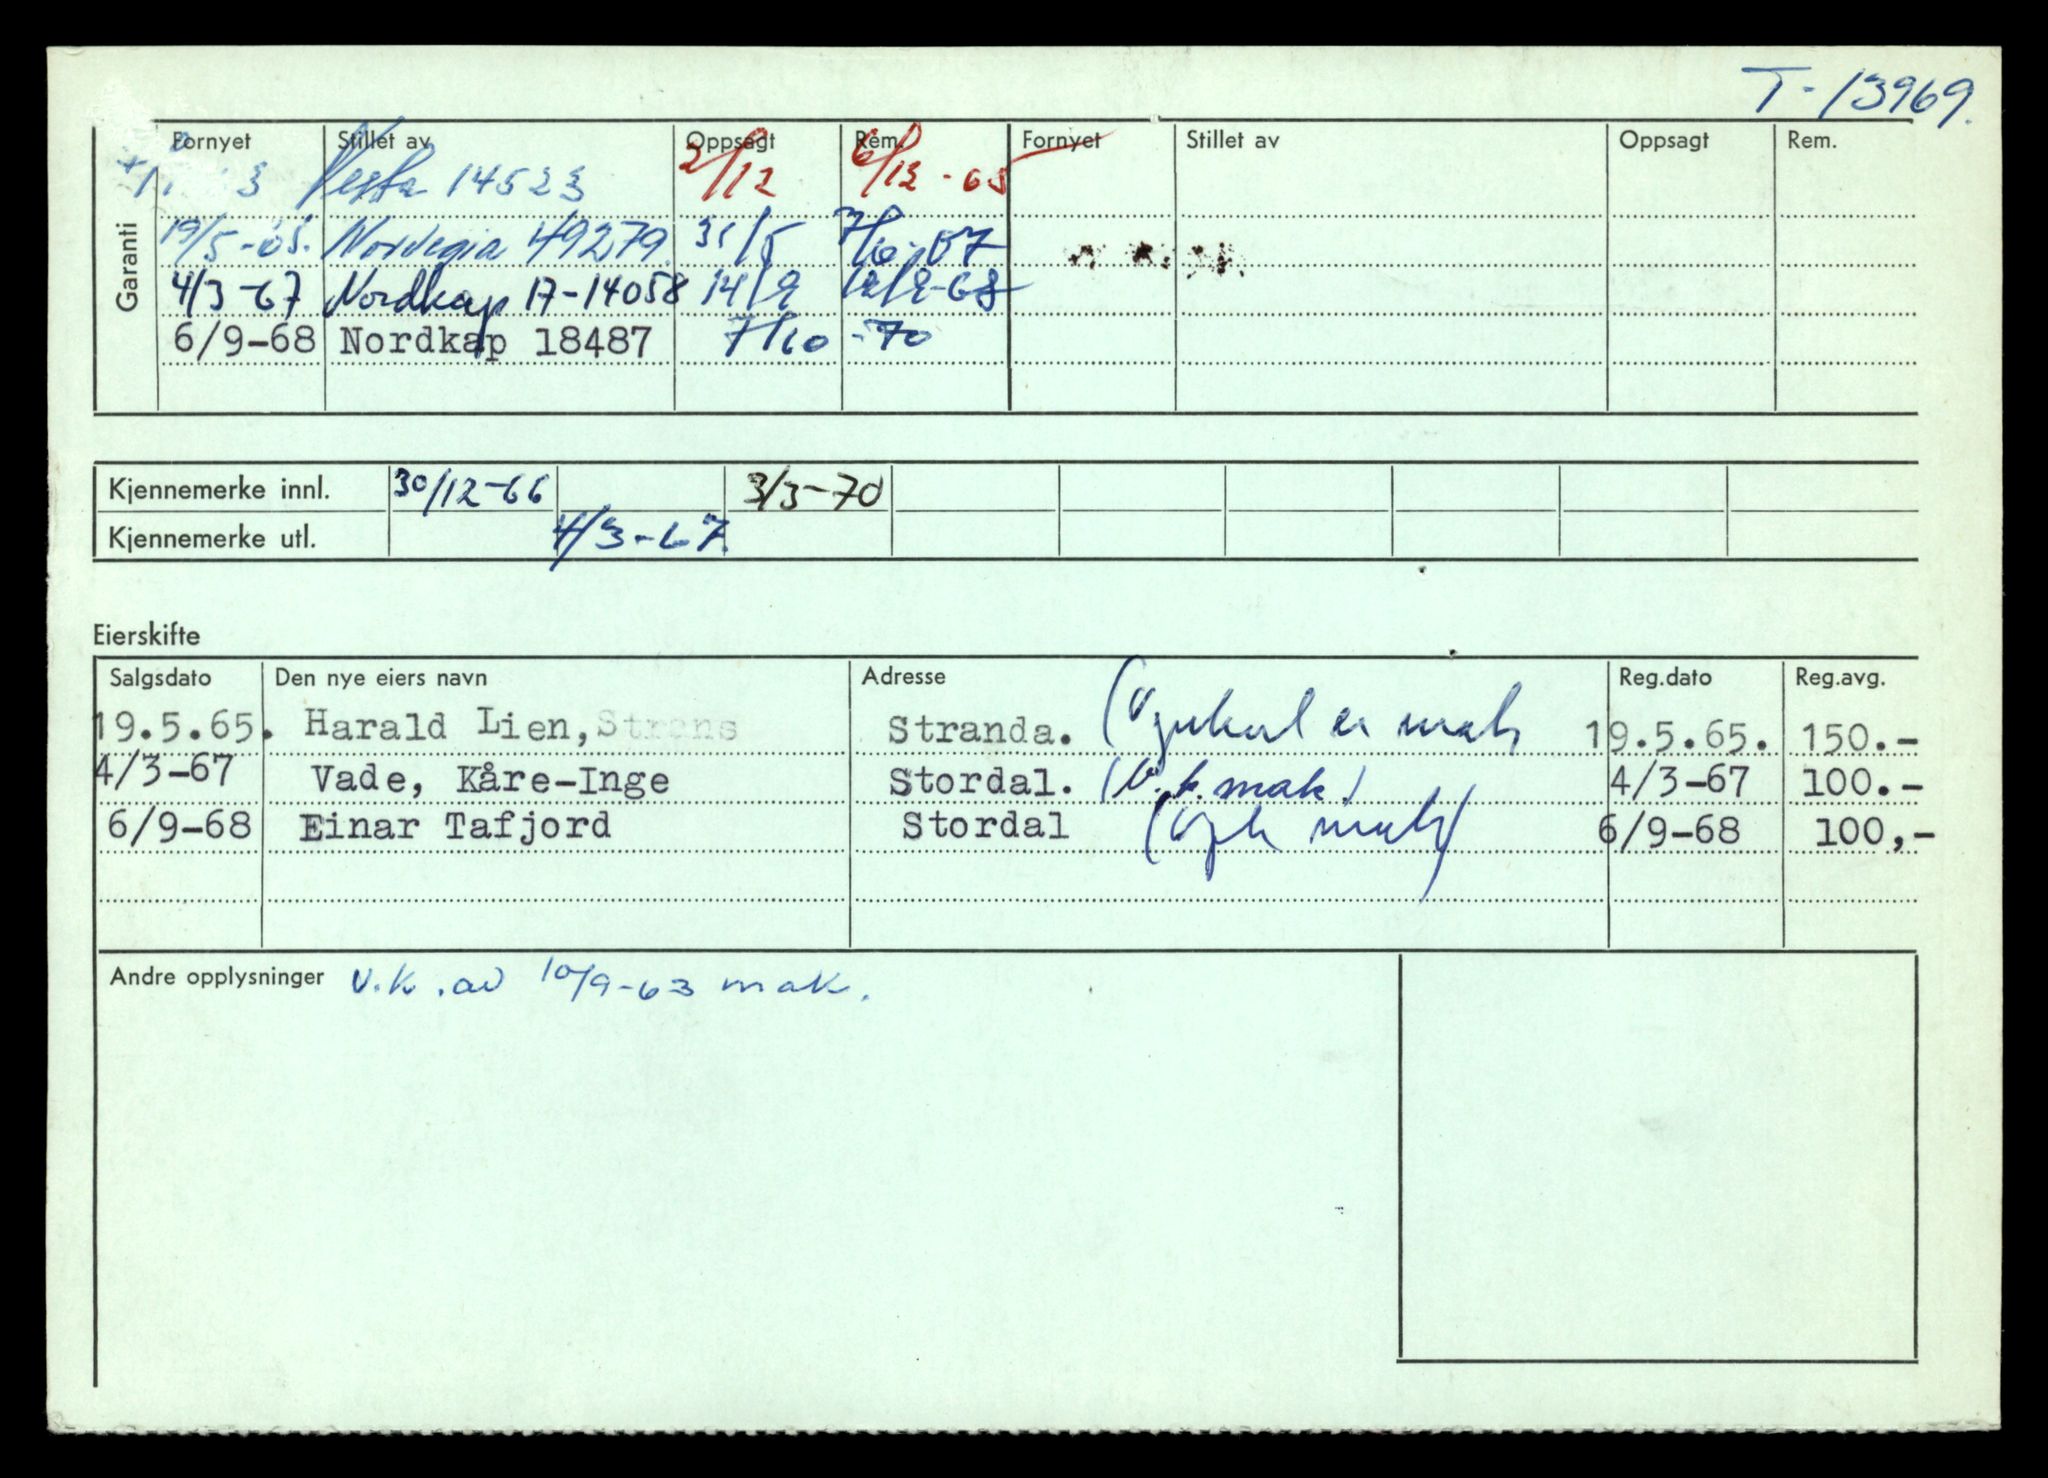 T-13969.
Garanti
Fornyet Stillet av Oppsagt Rem. Fornyet Stillet av Oppsagt Rem.
3 Vesta 14523 2/12 6/12-65
19/5-65. Norvegia 49279. 31/5 67
4/3-67 Nordkap 17-14058 14/2 12/2-68
6/9-68 Nordkap 18487 7/10-70
Kjennemerke innl. 30/12-66 3/3-70
Kjennemerke utl. 4/3-67
Eierskifte
Salgsdato Den nye eiers navn Adresse Reg.dato Reg.avg.
19.5.65. Harald Lien, Strans Stranda. er mak 19.5.65. 150.-
4/3-67 Vade, Kåre-Inge Stordal. (V.k. mak) 4/3-67 100.-
6/9-68 Einar Tafjord Stordal mak) 6/9-68 100,-
Andre opplysninger V.k. av 10/9-63 mak.